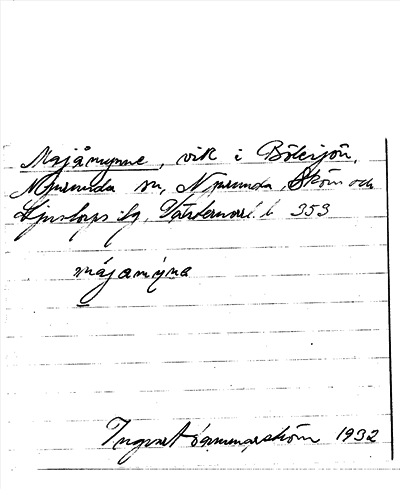 Majåmynne, vik i Bölesjön,
Njurunda sn, Njurunda, Sköns och
Ljustorps tg, Västernorrl. l. 353
májamýna
Ingvar Hammarström 1932